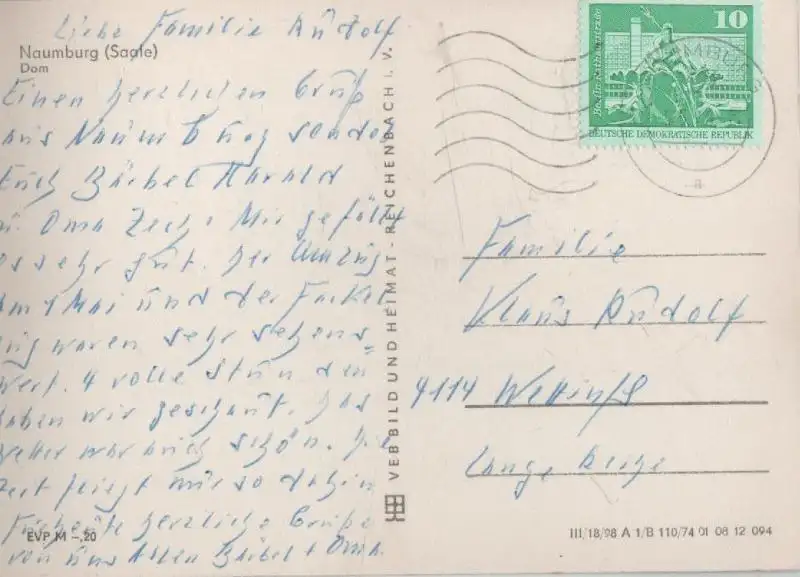 Liebe Familie Rudolf
Naumburg (Saale)
Dom
Einen herzlichen Gruß
aus Naumburg sendet
Euch Bärbel Harald
u. Oma Zech. Mir gefällt
es sehr gut. Der Umzug
am 1 Mai und der Fackel
zug waren sehr sehens=
wert. 4 volle Stunden
haben wir geschaut. Das
Wetter war auch schön. Die
Zeit fliegt nur so dahin
Für heute herzliche Grüße
EVP M –,20
von uns Allen Bärbel + Oma.
VEB BILD UND HEIMAT - REICHENBACH I. V.
10
Berlin-Rathausstraße
DEUTSCHE DEMOKRATISCHE REPUBLIK
a
Familie
Klaus Rudolf
4114 Wettin/S
Lange Reihe
III/18/98 A 1/B 110/74 01 08 12 094